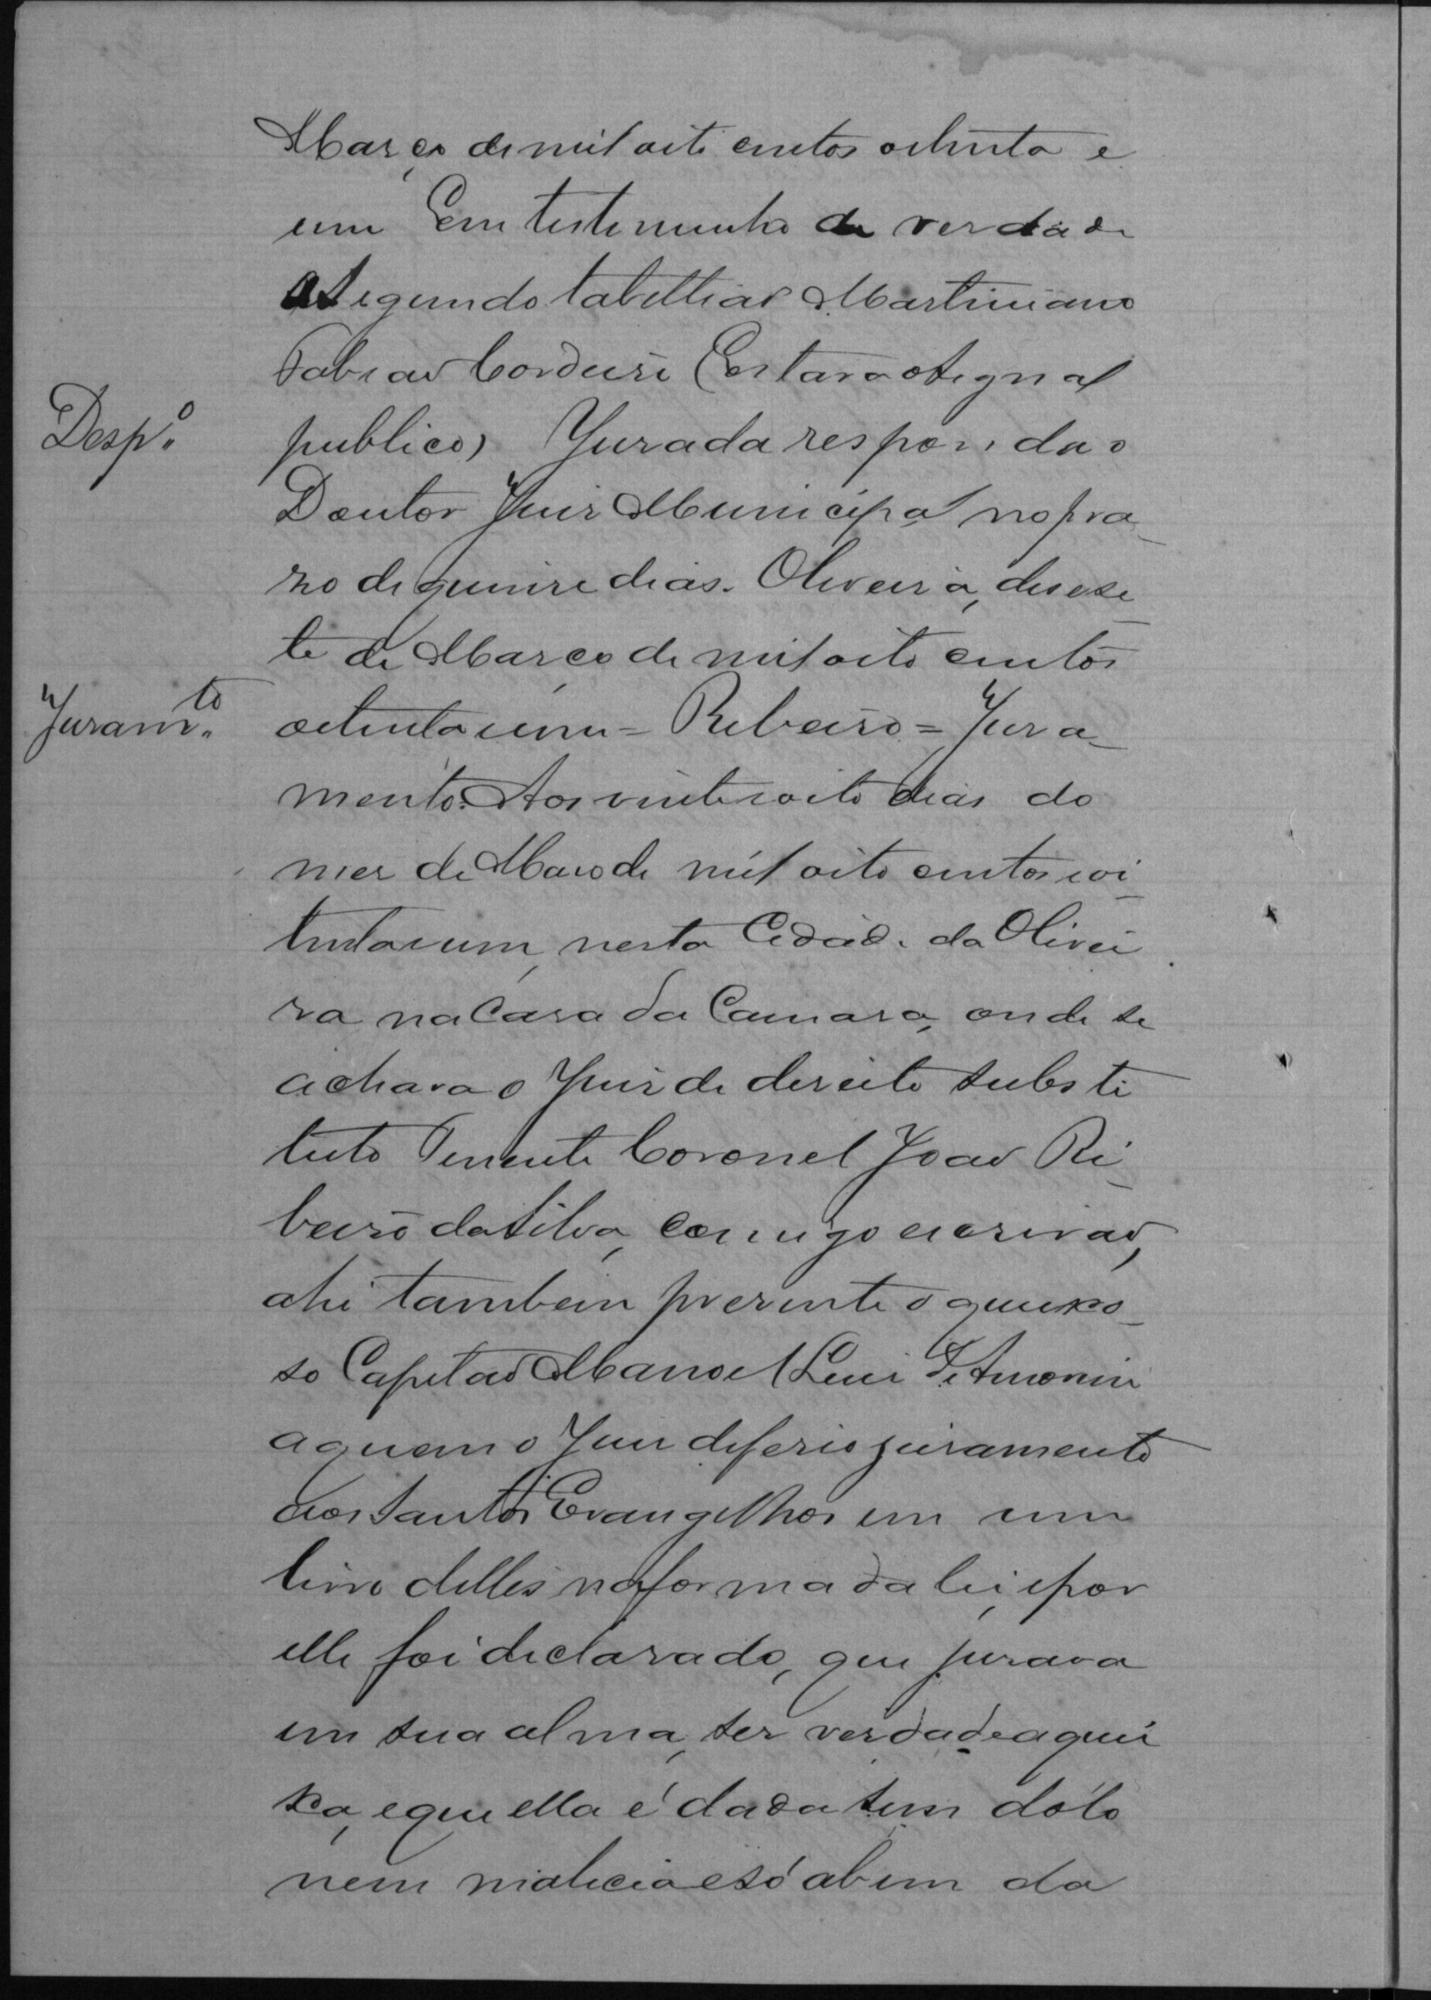 Março de mil oito centos oitenta e
um Em testemunho da verdade
o Segundo tabelliaõ Martiniano
Fabiaõ Cordeiro (Estava o signal
publico) Jurada responda o
Desp.º
Doutor Juiz Municipal no pra-
zo de quinze dias. Oliveira, desese-
te de Março de mil oito centos
oitenta e um = Ribeiro = Jura-
Juram.to
mento. Aos vinte e oito dias do
mez de Março de mil oito centos e oi-
tenta e um, nesta Cidade da Olivei
ra na Casa da Camara, onde se
achava o Juiz de direito substi
tuto Tenente Coronel Joaõ Ri-
beiro da Silva, comigo escrivaõ,
ahi tambem prezente o queixo-
so Capitaõ Manoel Luiz de Amorim
a quem o Juiz deferio juramento
aos Santos Evangelhos em um
livro delles na forma da lei, e por
elle foi declarado, que jurava
em sua alma, ser verdade a quei
xa, e que ella é dada sem dólo
nem malicia e só a bem da